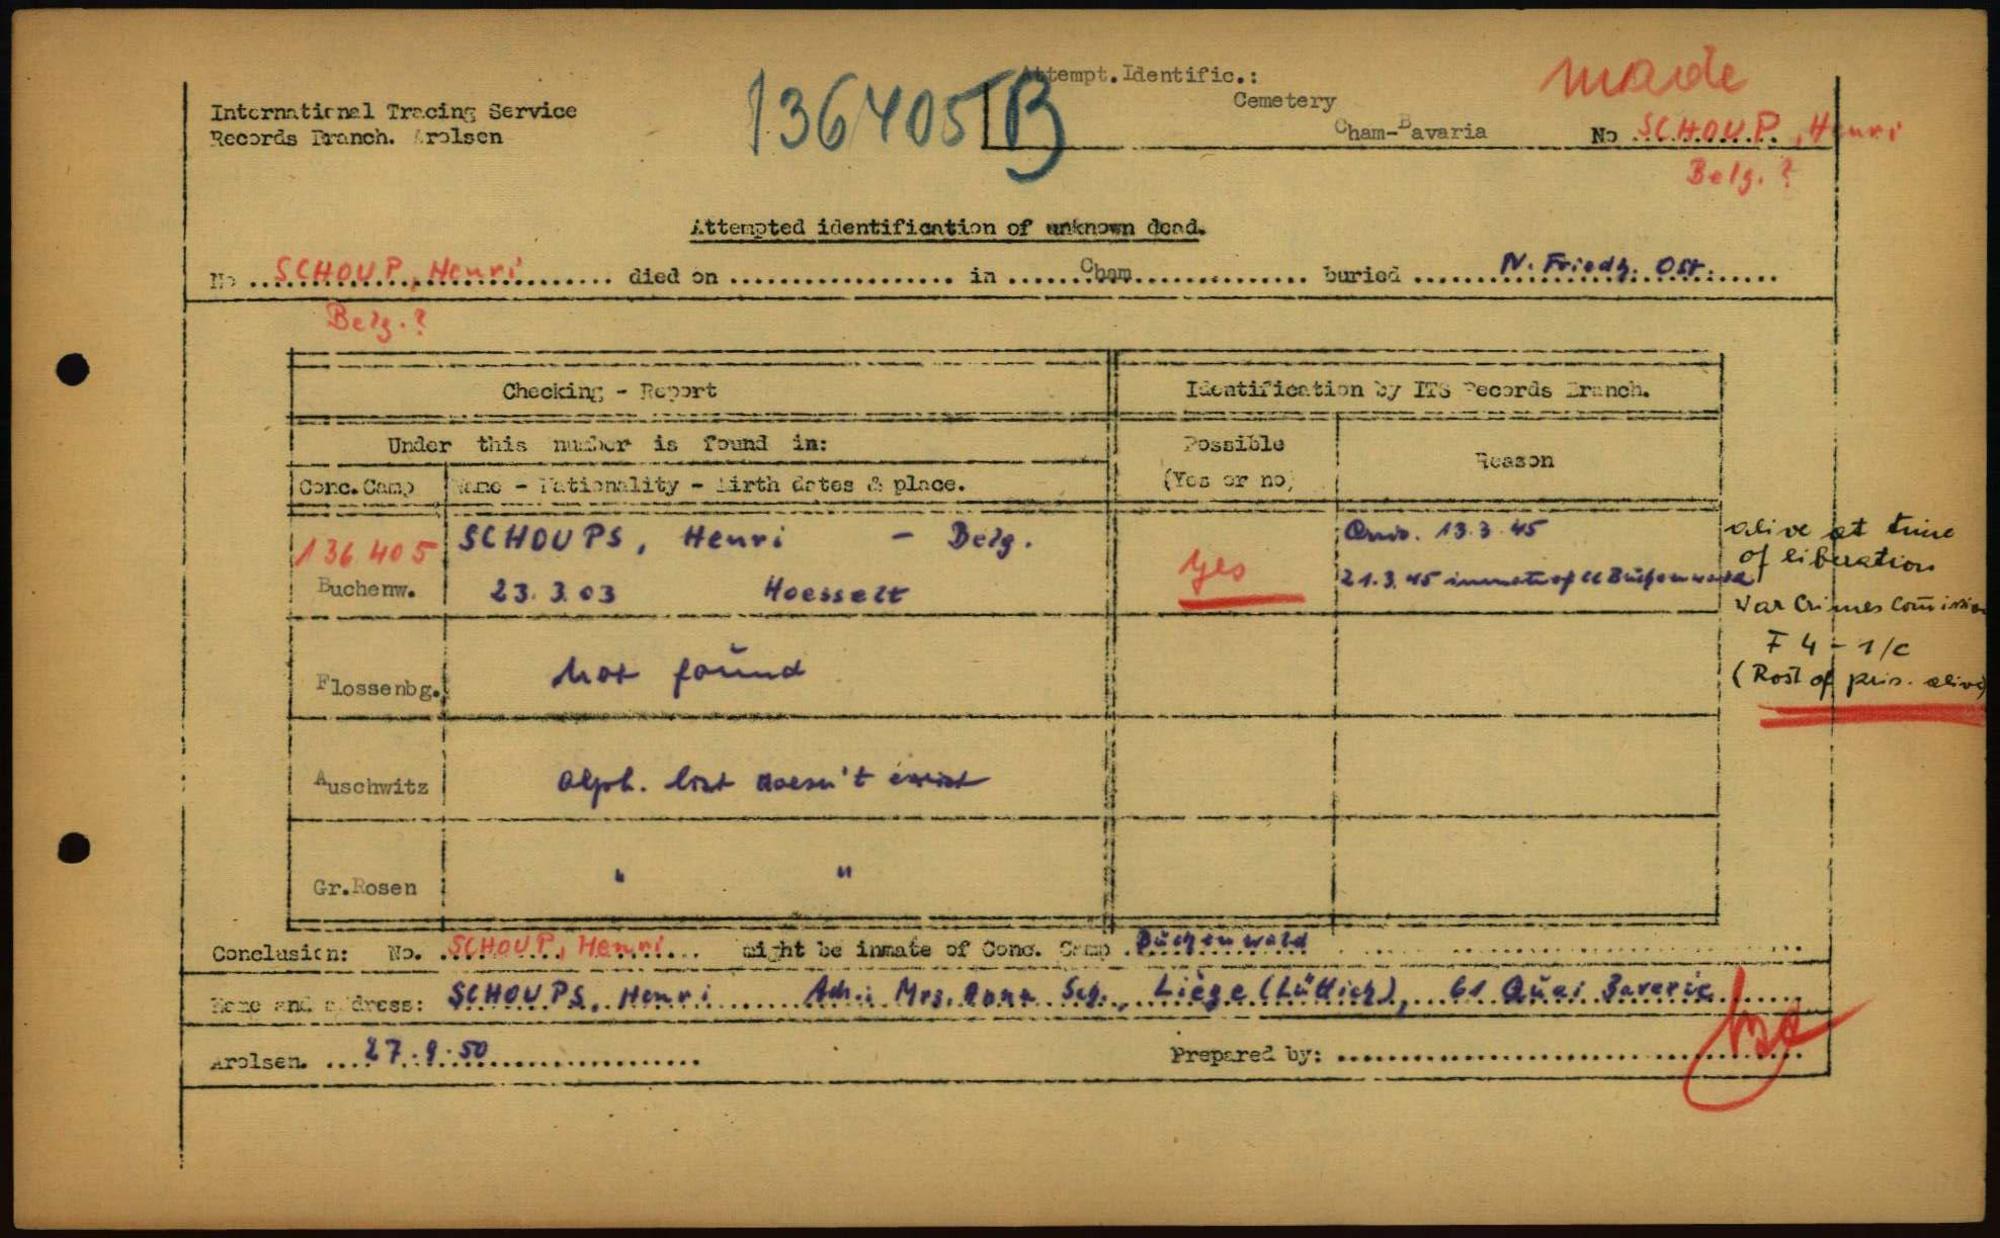 136405 B
Attempt. Identific.:
Cemetery
Cham-Bavaria
made
No SCHOUP, Henri
Belg. ?
International Tracing Service
Records Branch. Arolsen
Attempted identification of unknown dead.
No SCHOUP, Henri died on in Cham buried N. Friedh. Ost.
Belg. ?
Checking - Report Identification by ITS Records Branch.
Under this number is found in: Possible Reason
(Yes or no)
Conc. Camp Name - Nationality - Birth dates & place.
136405 SCHOUPS, Henri - Belg. yes 13.3.45
Buchenw. 23.3.03 Hoesselt 21.3.45 inmate of CC Buchenwald
alive at time
of liberation
War Crimes Comission
F 4 - 1/c
(Rost of pris. alive)
Flossenbg. not found
Auschwitz alph. list doesn't exist
Gr.Rosen " "
Conclusion: No. SCHOUP, Henri might be inmate of Conc. Camp Buchenwald
Name and address: SCHOUPS, Henri Adr.: Mrs. Anna Sch., Liège (Lüttich), 61 Quai Baverie
Arolsen. 27.9.50 Prepared by: